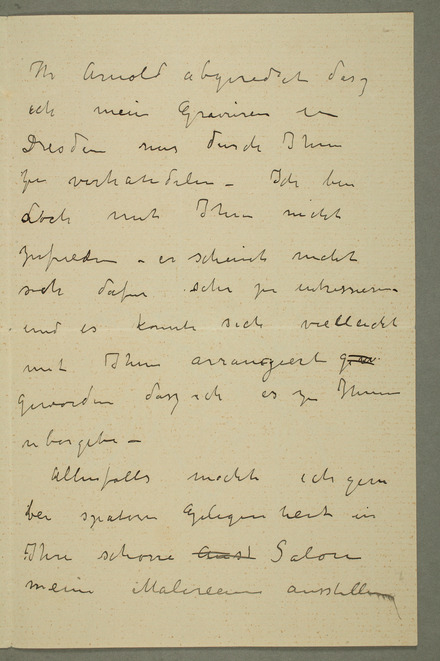 Hr Arnold abgeredet dasz
ich mein Gravüren in
Dresden nur durch Ihm
zu verhandelen – Ich bin
doch mit Ihm nicht
zufrieden – er scheint nicht
sich dafur sehr zu interessieren
und es konnte sich vielleicht
mit Ihm arrangiert
geworden dasz ich es zu Ihnen
ubergebe –
Allenfalls mocht ich gern
bei spatern Gelegenheit in
Ihre schone Salon
meine Malereien ausstellen